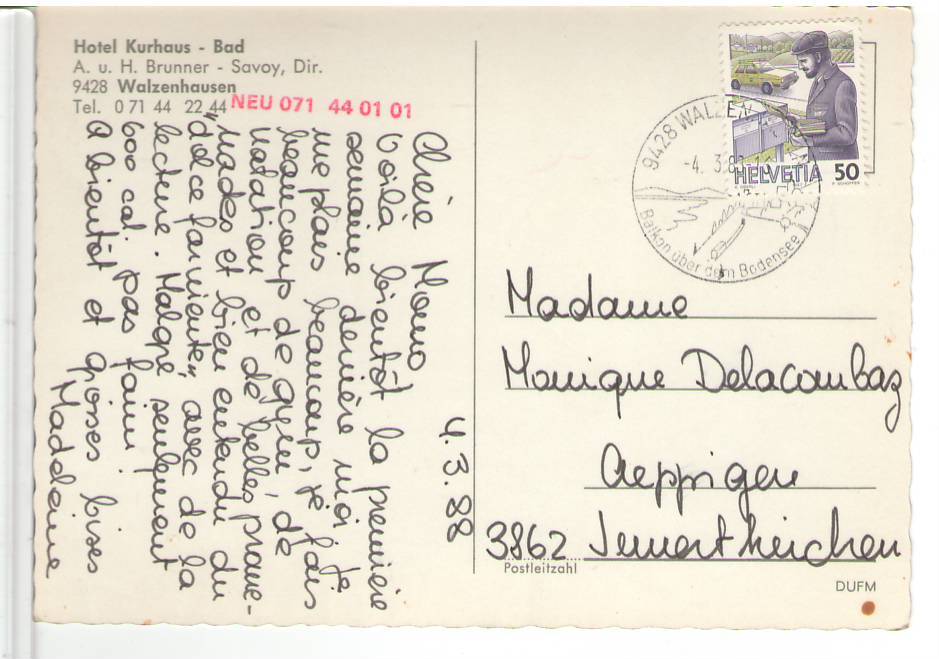 Hotel Kurhaus - Bad
A. u. H. Brunner - Savoy, Dir.
9428 Walzenhausen
Tel. 0 71 44 22 44 NEU 071 44 01 01
4.3.88
Chère Momo
Voilà bientôt la première
semaine dernière moi je
me plais beaucoup, je fais
beaucoup de gym, de
natation et de belles prome-
nades et bien entendu du
"dolce farniente" avec de la
lecture. Malgré seulement
600 cal. pas faim!
A bientôt et grosses bises
Madeleine
9428 WALZEN
-4. 3.8
Balkon über dem Bodensee
HELVETIA 50
Madame
Monique Delacombaz
Aeppigen
3862 Innertkirchen
Postleitzahl
DUFM